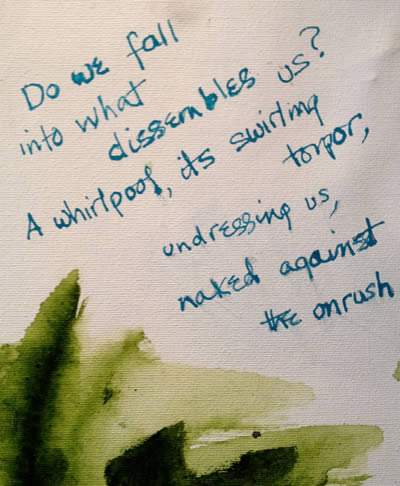 Do we fall
into what
dissembles us?
A whirlpool, its swirling
torpor,
undressing us,
naked against
the onrush